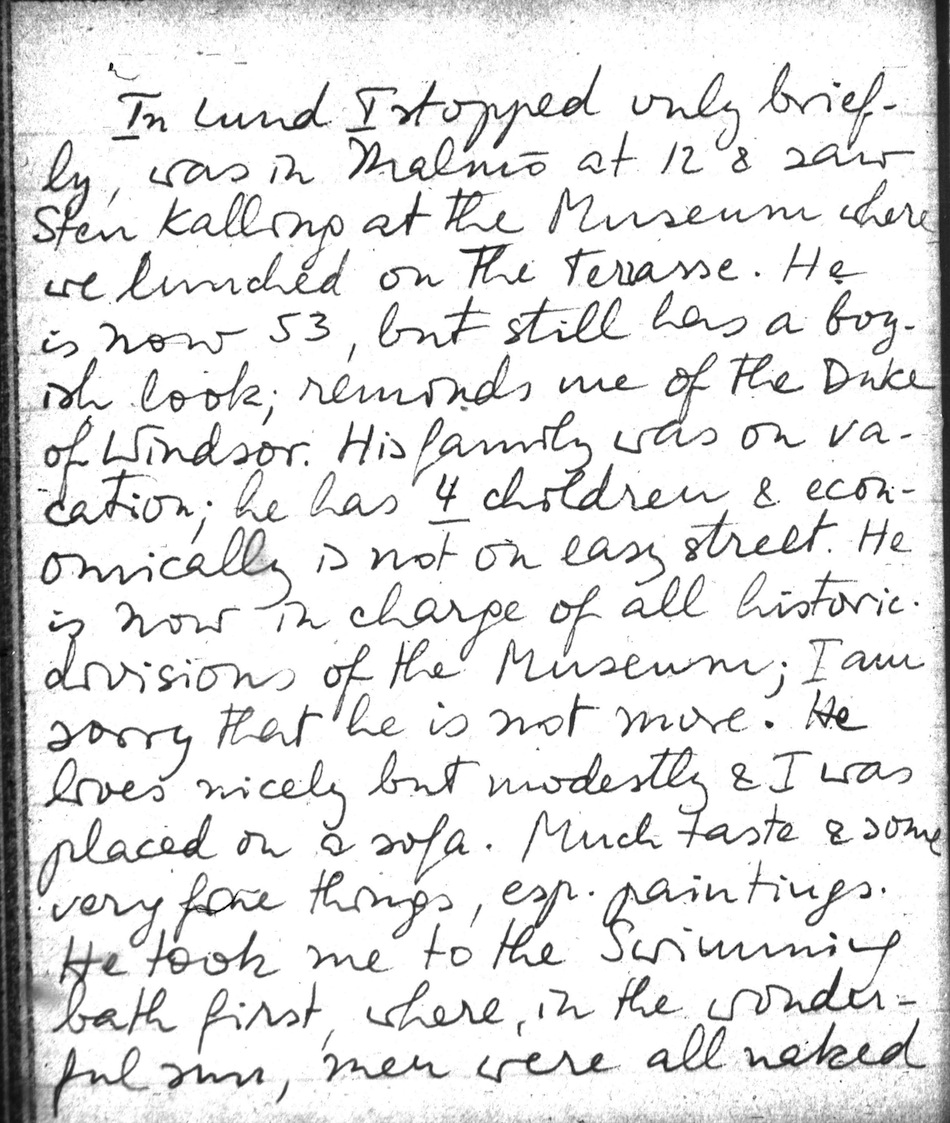 In Lund I stopped only brief-
ly, was in Malmö at 12 & saw
Sten Kalling at the Museum where
we lunched on the Terrasse. He
is now 53, but still has a boy-
ish look; reminds me of the Duke
of Windsor. His family was on va-
cation; he has 4 children & econ-
omically is not on easy street. He
is now in charge of all historic.
divisions of the Museum; I am
sorry that he is not more. He
lives nicely but modestly & I was
placed on a sofa. Much taste & some
very fine things, esp. paintings.
He took me to the Swimming
bath first, where, in the wonder-
ful sun, men were all naked